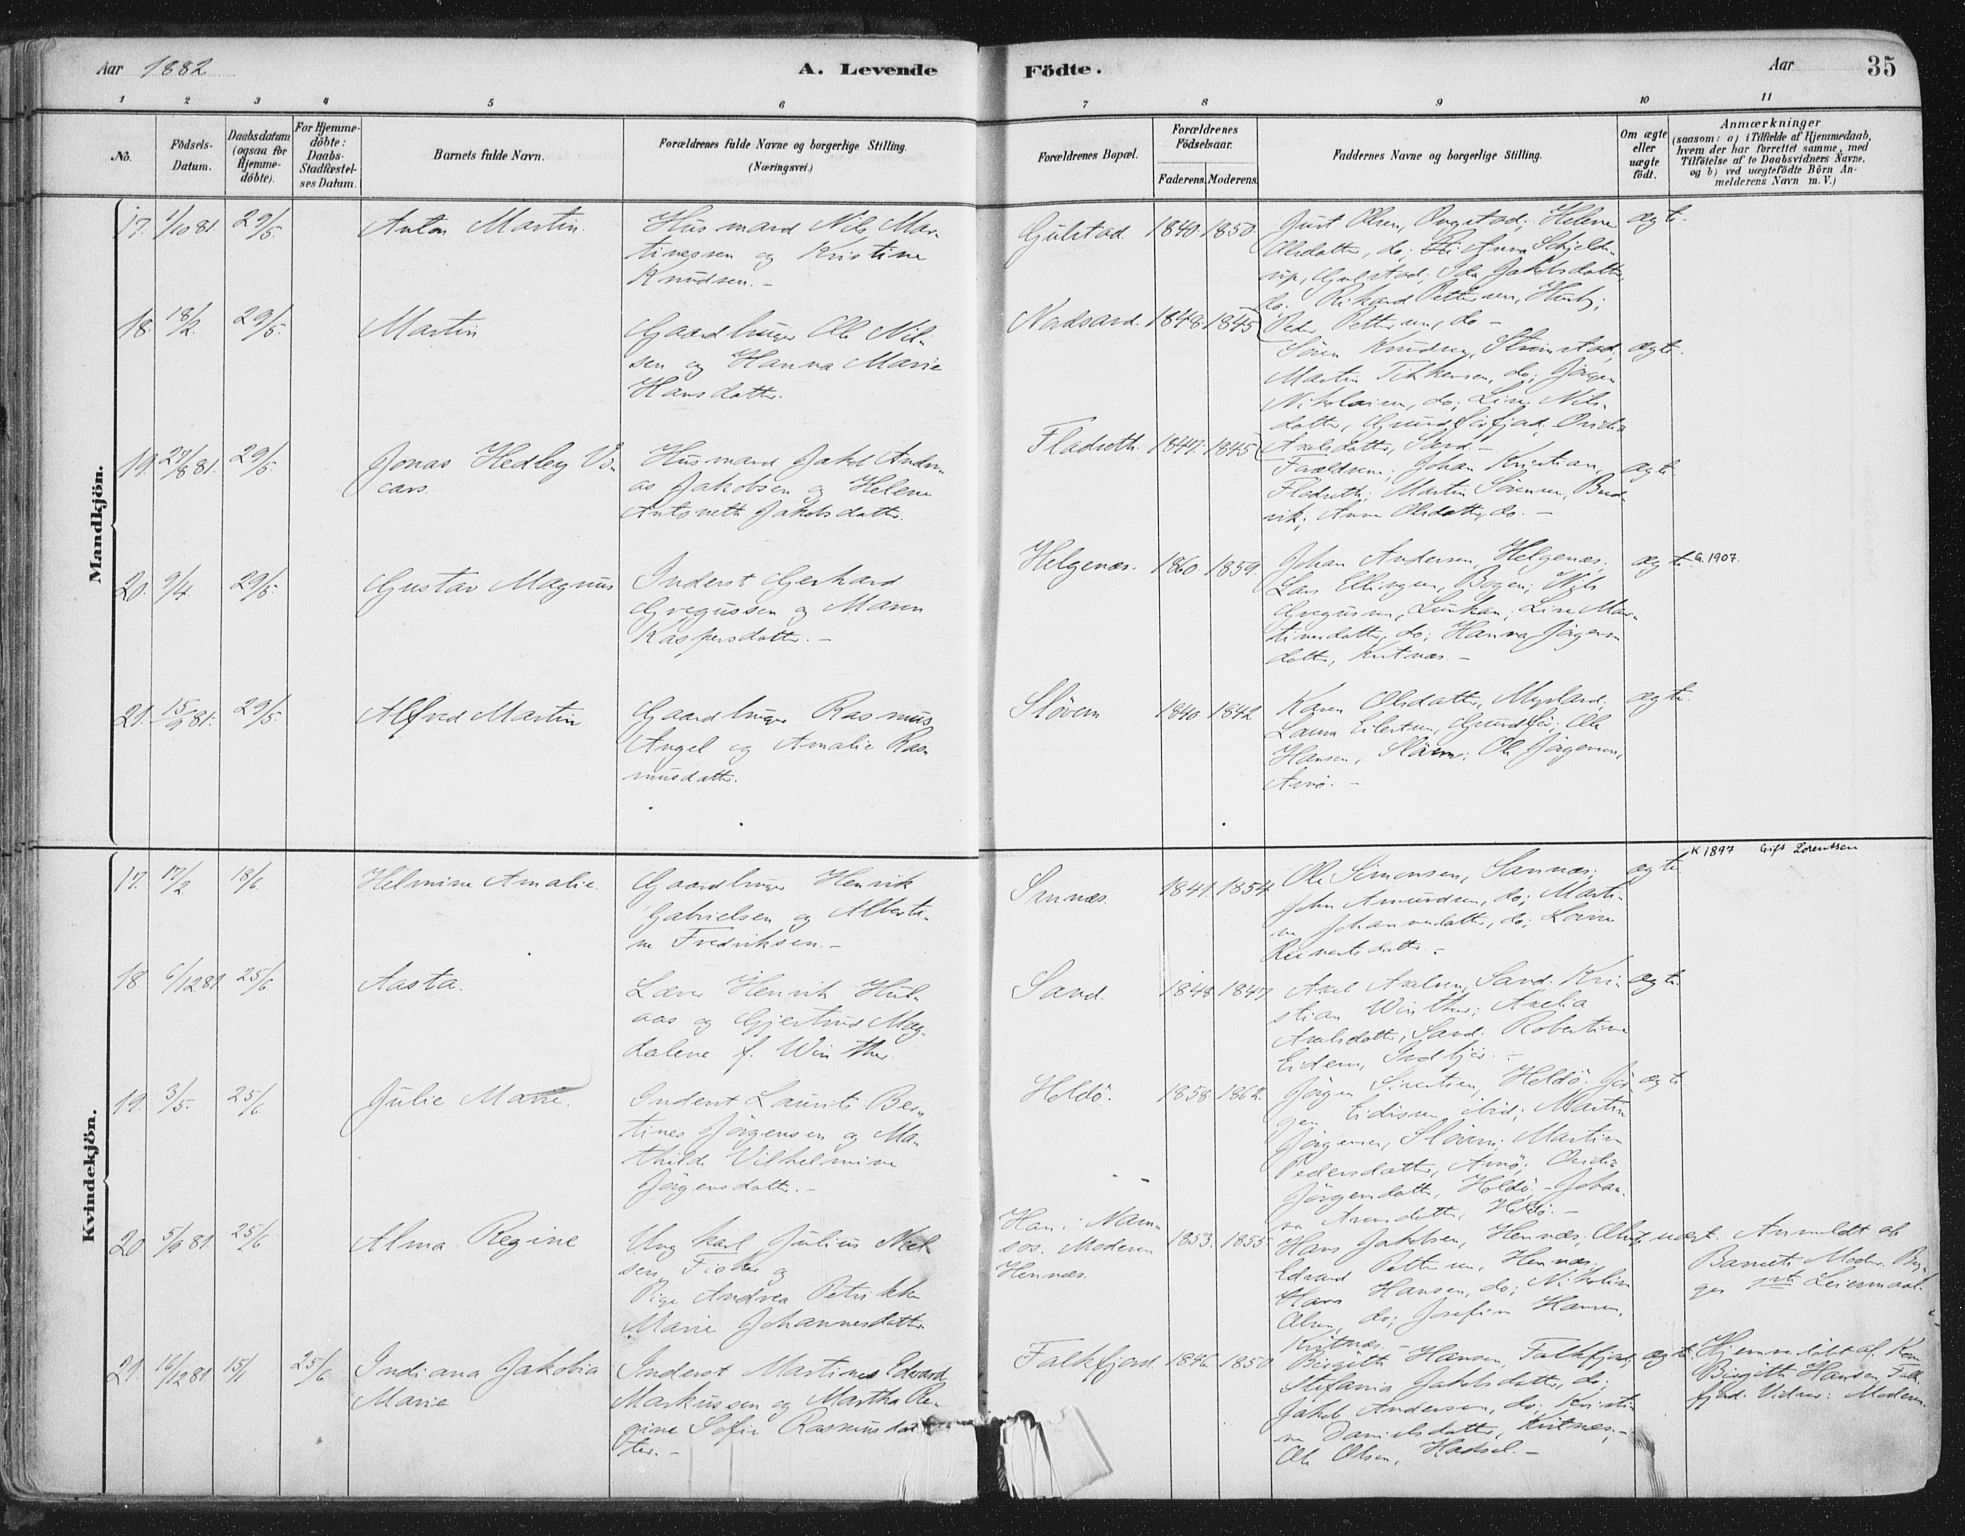 Aar 1882
A. Levende
Födte.
Aar
35
1 2 3 4 5 6 7 8 9 10 11
No.
Födsels-
Datum.
Daabsdatum
(ogsaa for
Hjemme-
döbte).
For Hjemme-
döbte:
Daabs-
Stadfæstel-
ses Datum.
Barnets fulde Navn.
Forældrenes fulde Navne og borgerlige Stilling.
(Næringsvei.)
Forældrenes Bopæl.
Forældrenes
Födselsaar.
Faderens. Moderens.
Faddernes Navne og borgerlige Stilling.
Om ægte
eller
uægte
födt.
Anmærkninger
(saasom: a) i Tilfælde af Hjemmedaab,
hvem der har forrettet samme, med
Tilföielse af to Daabsvidners Navne.
og b) ved uægtefödte Börn An-
melderens Navn m. V.)
Mandkjön.
17. 1/10 81. 29/5. Anton Martin.
Husmand Nils Mar-
tinessen og Kristine
Knudsen. -
Gulstad. 1840. 1850.
Just Olsen, Helene
Olsdatter, do; Anna Schjelde-
rup, Gulstad; Ida Jakobsdatter,
do; Rikard Pettersen, Husby;
Peder Pettersen, do -
ægte.
18. 18/2. 29/5. Martin
Gaardbruger Ole Nil-
sen og Hanna Marie
Hansdatter.
Nordsand. 1848. 1845
Sören Knudsen, Strinstad;
Martin Tikkensen, do; Jörgen
Nikolaisen, do; Line Nils-
datter,
Axelsdatter, Sand. -
ægte.
19. 27/8 81. 29/5. Jonas Hedley Vi-
cars.
Husmand Jakob Andre-
as Jakobsen og Helene
Antonette Jakobsdatter.
Fladseth. 1847. 1845
Forældrene; Johan Kristian,
Fladseth; Martin Sörensen, Bud-
vik; Anna Olsdatter, do. -
ægte
20. 9/4 29/5. Gustav Magnus
Inderst Gerhard
Gregussen og Maren
Kaspersdatter. -
Helgenæs. 1860. 1859.
Johan Andersen, Helgenæs;
Lars Ellingsen, Bogen; Nils
Gregusen, Line Mar-
tinsdatter, do; Hanna Jörgens-
datter, Kvitnæs. -
ægte G. 1907.
21. 15/9 81. 29/5. Alfred Martin
Gaardbruger Rasmus
Angel og Amalie Ras-
musdatter.
Slöven 1840 1842
Karen Olsdatter, Myrland;
Laura Eilertsen, Grundför; Ole
Hansen, Slöven; Ole Jörgensen,
Arnö. -
ægte.
Kvindekjön.
17. 17/2 18/6 Helmine Amalie.
Gaardbruger Henrik
Gabrielsen og Alberti-
ne Fredriksen. -
Sannæs. 1841. 1854
Ole Simonsen, Sannæs;
John Amundsen, do; Marti-
ne Johannesdatter, do; Lovise
Reinertsdatter. -
ægte
K 1897 Gift Lorentsen
18. 6/12 81. 25/6 Aasta.
Lærer Henrik Hul-
aas og Gjertrud Mag-
dalene f. Winther.
Sand. 1848. 1847
Axel Axelsen, Sand; Kri-
stian Winther; Axelia
Axelsdatter, Sand; Robertine
Eidem, Indbjör. -
ægte.
19. 3/5. 25/6 Julie Marie.
Inderst Laurits Ber-
tines Jörgensen og Ma-
thilde Vilhelmine
Jörgensdatter. -
Holdö. 1858. 1862.
Jörgen Sivertsen, Holdö; Jör-
gen Eidissen, ibid; Martin
Jörgensen, Slöven; Martine
Pedersdatter, Arnö; Ovidia
Jörgensdatter, Holdö. - Johan-
na Arnesdatter, Holdö. -
ægte
20. 5/9 81. 25/6 Alma Regine
Ungkarl Julius Niel-
sen, Fisker og
Pige Andrea Petrikke
Marie Johannesdatter
Han: Nam-
sos. Moderen
Hennæs.
1853. 1855
Hans Jakobsen, Hennæs;
Edvard Pettersen, Hennæs;
Hans Hansen, do; Nikoline
Olsen, do; Josefine Hansen,
Kvitnæs. -
uægt.
Anmeldt af
Barnets Moder. Beg-
ges 1ste Leiermaal.
21. 16/12 81 15/1 25/6 Indiana Jakobia
Marie
Inderst Martines Edvard
Markussen og Martha Re-
gine Sofie Rasmusdat-
ter. -
Falkfjord. 1846. 1850
Birgith Hansen, Falkfjord;
Stefania Jakobsdatter, do;
Jakob Andersen, do; Kristi-
ne Danielsdatter, Kvitnæs; -
Ole Olsen, Hadsel. -
ægte.
Hjemmedöbt af
Birgith Hansen, Falk-
fjord. Vidner: Moderen